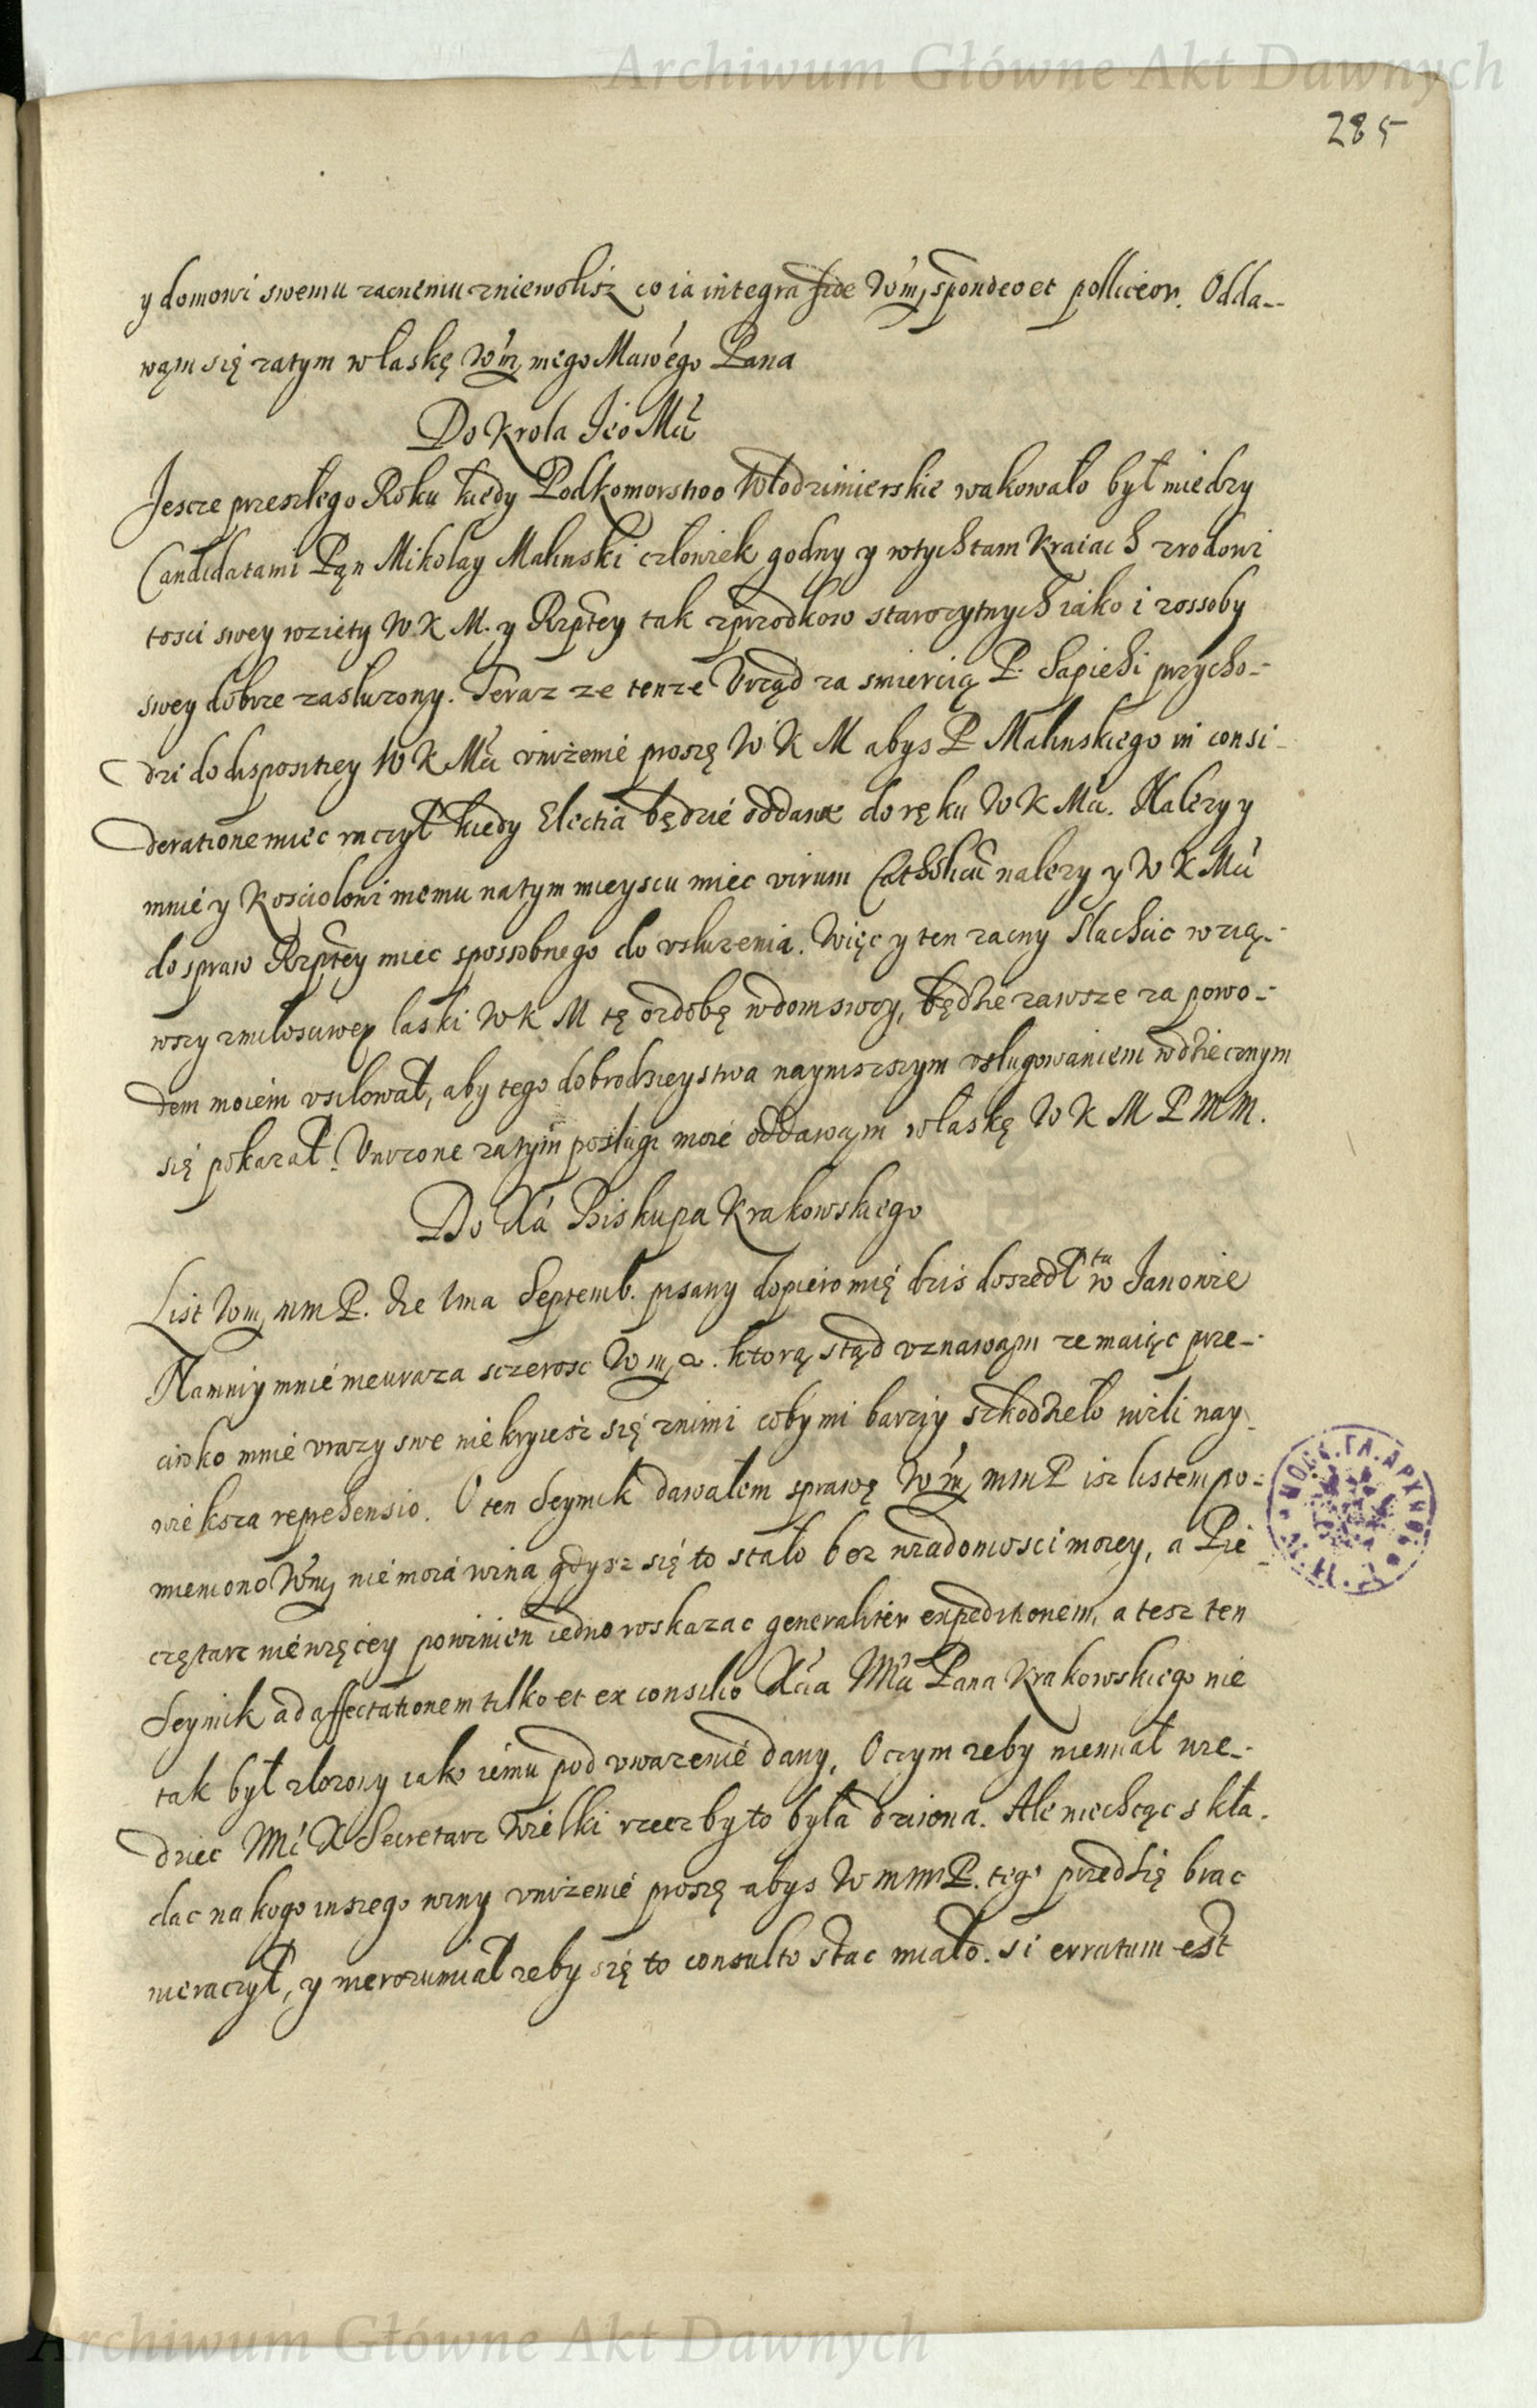 Archiwum Główne Akt Dawnych
285
y domowi swemu zacnemu zniewolisz co ia integra fide Wm, spondeo et polliceor. Odda-
wąm się zatym w łaskę Wm, mego Mawego Pana
Do Krola Jeo Mći
Jescze przeszłego Roku kiedy Podkomorstwo Włodzimierskie wakowało był miedzy
Candidatami Pąn Mikołay Malinski człowiek godny y wtych tam Kraiach zrodowi
tosci swey wzięty W. K M. y Rzptey tak zprzodkow starozytnych iako i zossoby
swey dobrze zasłuzony. Teraz ze tenze Vrząd za smiercią P. Sapiehi przycho-
dzi do dispositiey W K Mći vnizenie proszę W K M abys P Malinskiego in consi-
deratione miec raczył kiedy Electia będzie oddana do ręku W K Mći. Nalezy y
mnie y Kosciołowi memu na tym mieyscu miec virum Catholicū nalezy y W K Mći
do spraw Rzptey miec spossobnego do vsłuzenia. Więc y ten zacny Slachcic wzią-
wszy zmiłosciwey łaski W K M tę ozdobę wdom swoy, będzie zawsze za powo-
dem moiem vsiłował, aby tego dobrodzieystwa naynizszym vsługowaniem wdziecznym
się pokazał. Vnizone zatym posługi moie oddawąm w łaskę W K M P M M.
Do Xa Biskupa Krakowskiego
List Wm, mm P. die 1ma Septemb. pisany dopiero mię dzis doszedł tu w Janowie
Namniy mnie nieuraza sczerosc Wm, ktorą stąd vznawąm ze maiąc prze-
ciwko mnie vrazy swe nie kryiesz się znimi coby mi barziy szkodzieło nizli nay-
wieksza reprehensio. O ten Seymik dawałem sprawę Wm, mm P isz listem po-
mieniono Wm, nie moia wina gdysz się to stało bez wiadomosci moiey, a Pie-
czętarz nie więcey powinien iedno roskazac generaliter expeditionem, a tesz ten
Seymik ad affectationem tilko et ex consilio Xcia Mći Pana Krakowskiego nie
tak był złozony iako iemu pod vwazenie dany. O czym zeby niemiał wie-
dziec Mći X Secretarz Wielki rzecz by to była dziwna. Ale niechcąc skła-
dac na kogo inszego winy vnizenie proszę abys W mm P. tego przedsię brac
nieraczył, y nierozumiał zeby się to consulto stac miało. Si erratum est
Archiwum Główne Akt Dawnych